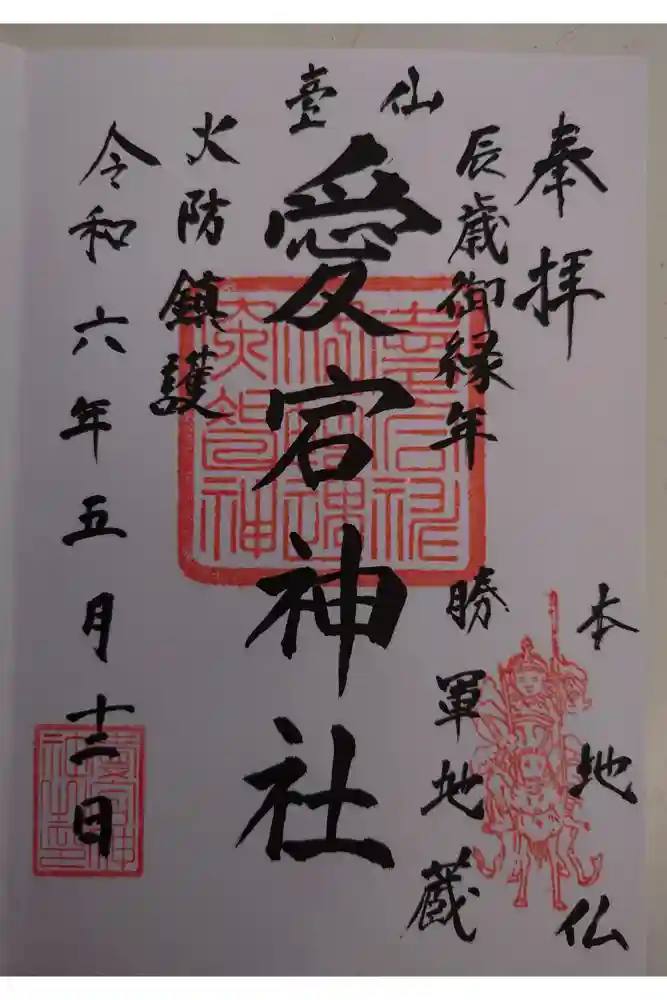 奉拝
辰歳御縁年
本地仏
勝軍地蔵
仙臺
愛宕神社
火防鎮護
令和六年五月十二日